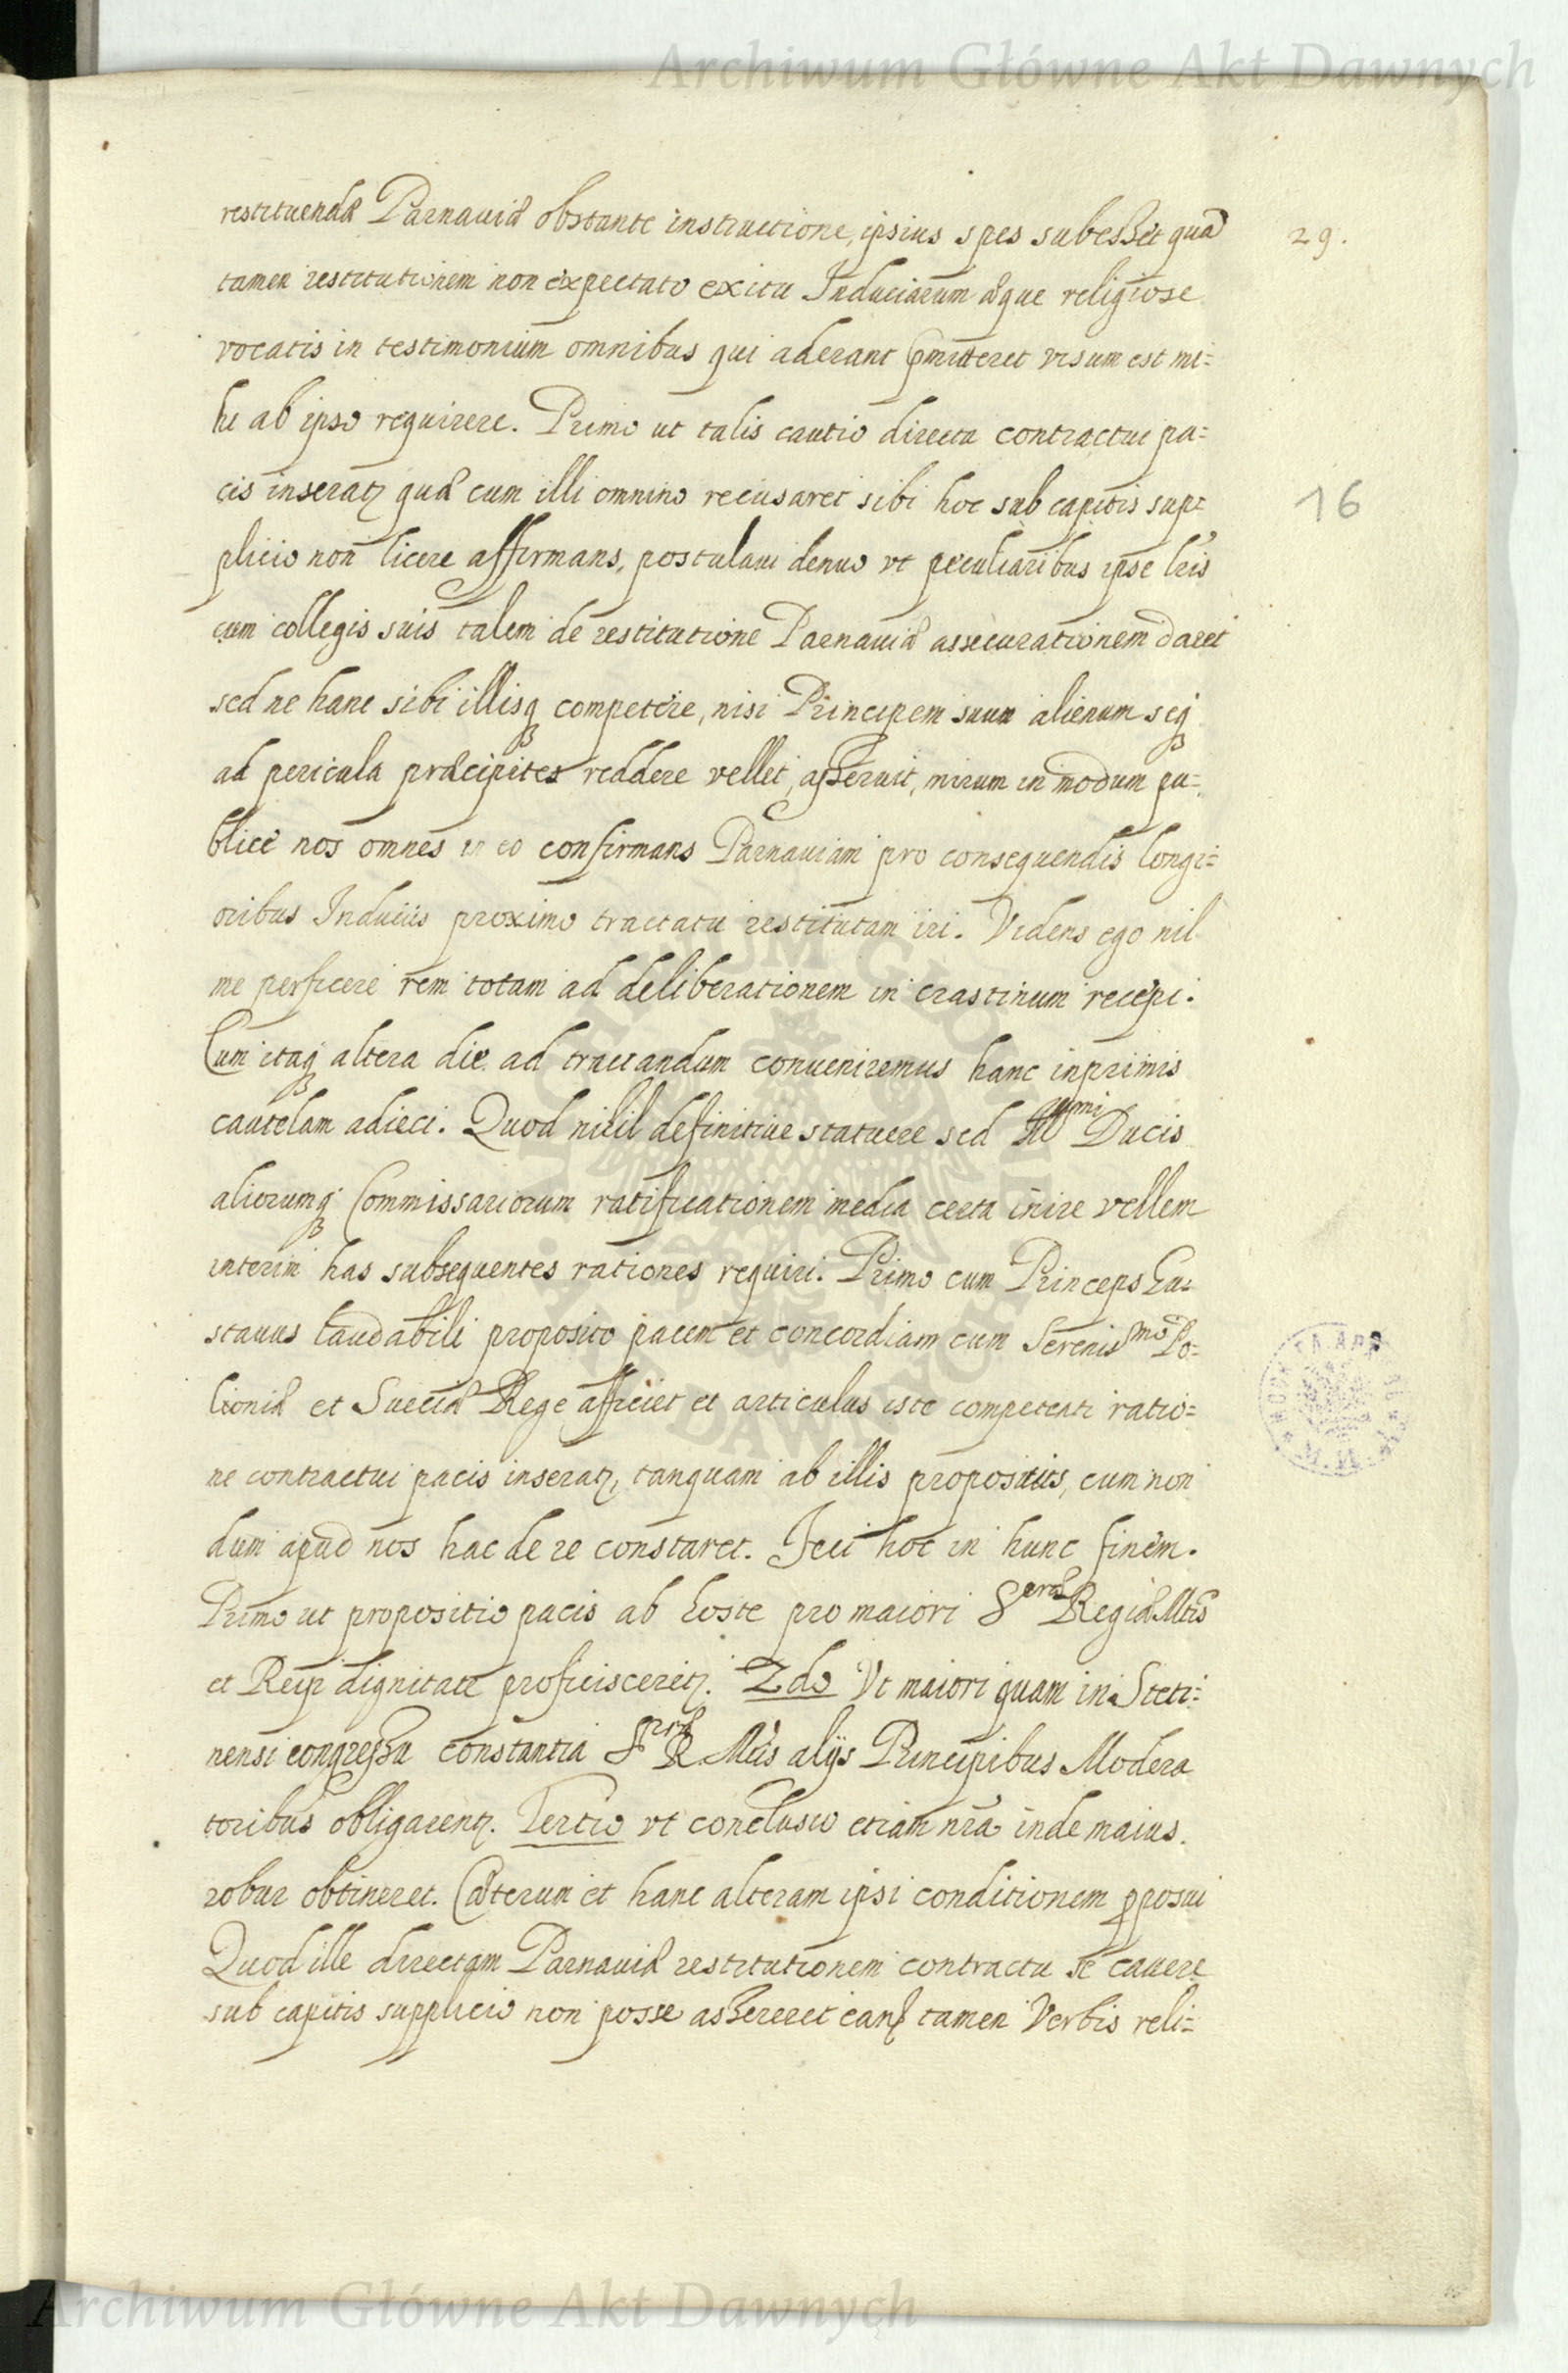 Archiwum Główne Akt Dawnych
restituendæ Parnauiæ obstante instructione, ipsius spes subesset quā
29.
tamen restitutionem non expectato exitu Induciarum æque religiose
vocatis in testimonium omnibus qui aderant ꝓmitteret visum est mi=
hi ab ipso requirere. Primo ut talis cautio directa contractui pa=
cis inseratʒ quæ cum illi omnino recusaret sibi hoc sub capitis sup=
16
plicio non licere affirmans, postulaui denuo vt peculiaribus ipse lr̃is
cum collegis suis talem de restitutione Parnauiæ assecurationem daret
sed ne hanc sibi illisqʒ competere, nisi Principem suum alienum seqʒ
ad pericula præcipites reddere vellet, asseruit, mirum in modum pu=
blice nos omnes in eo confirmans Parnauiam pro consequendis longi=
oribus Induciis proximo tractatu restitutam iri. Videns ego nil
me perficere rem totam ad deliberationem in crastinum recepi.
Cum itaqʒ altera die ad tractandum conueniremus hanc inprimis
cautelam adieci. Quod nihil definitiue statuere sed Illmi Ducis
aliorumqʒ Commissariorum ratificationem media certa inire vellem
interim has subsequentes rationes requiri. Primo cum Princeps Gu=
stauus laudabili proposito pacem et concordiam cum Serenismo Po=
lloniæ et Sueciæ Rege afficiet et articulus iste competenti ratio=
ne contractui pacis inseratʒ, tanquam ab illis propositus, cum non
dum apud nos hac de re constaret. Feci hoc in hunc finem.
Primo ut propositio pacis ab hoste pro maiori Seræ Regiæ Mtis
et Reip dignitate proficisceretʒ. 2do Vt maiori quam in Steti=
nensi congressu constantia Sræ R Mtis alijs Principibus Modera
toribus obligarentʒ. Tertio vt conclusio etiam nr̃a inde maius
robur obtineret. Cæterum et hanc alteram ipsi conditionem ꝓposui
Quod ille directam Parnauiæ restitutionem contractu se cauere
sub capitis supplicio non posse assereret eanʒ tamen Verbis reli=
Archiwum Główne Akt Dawnych